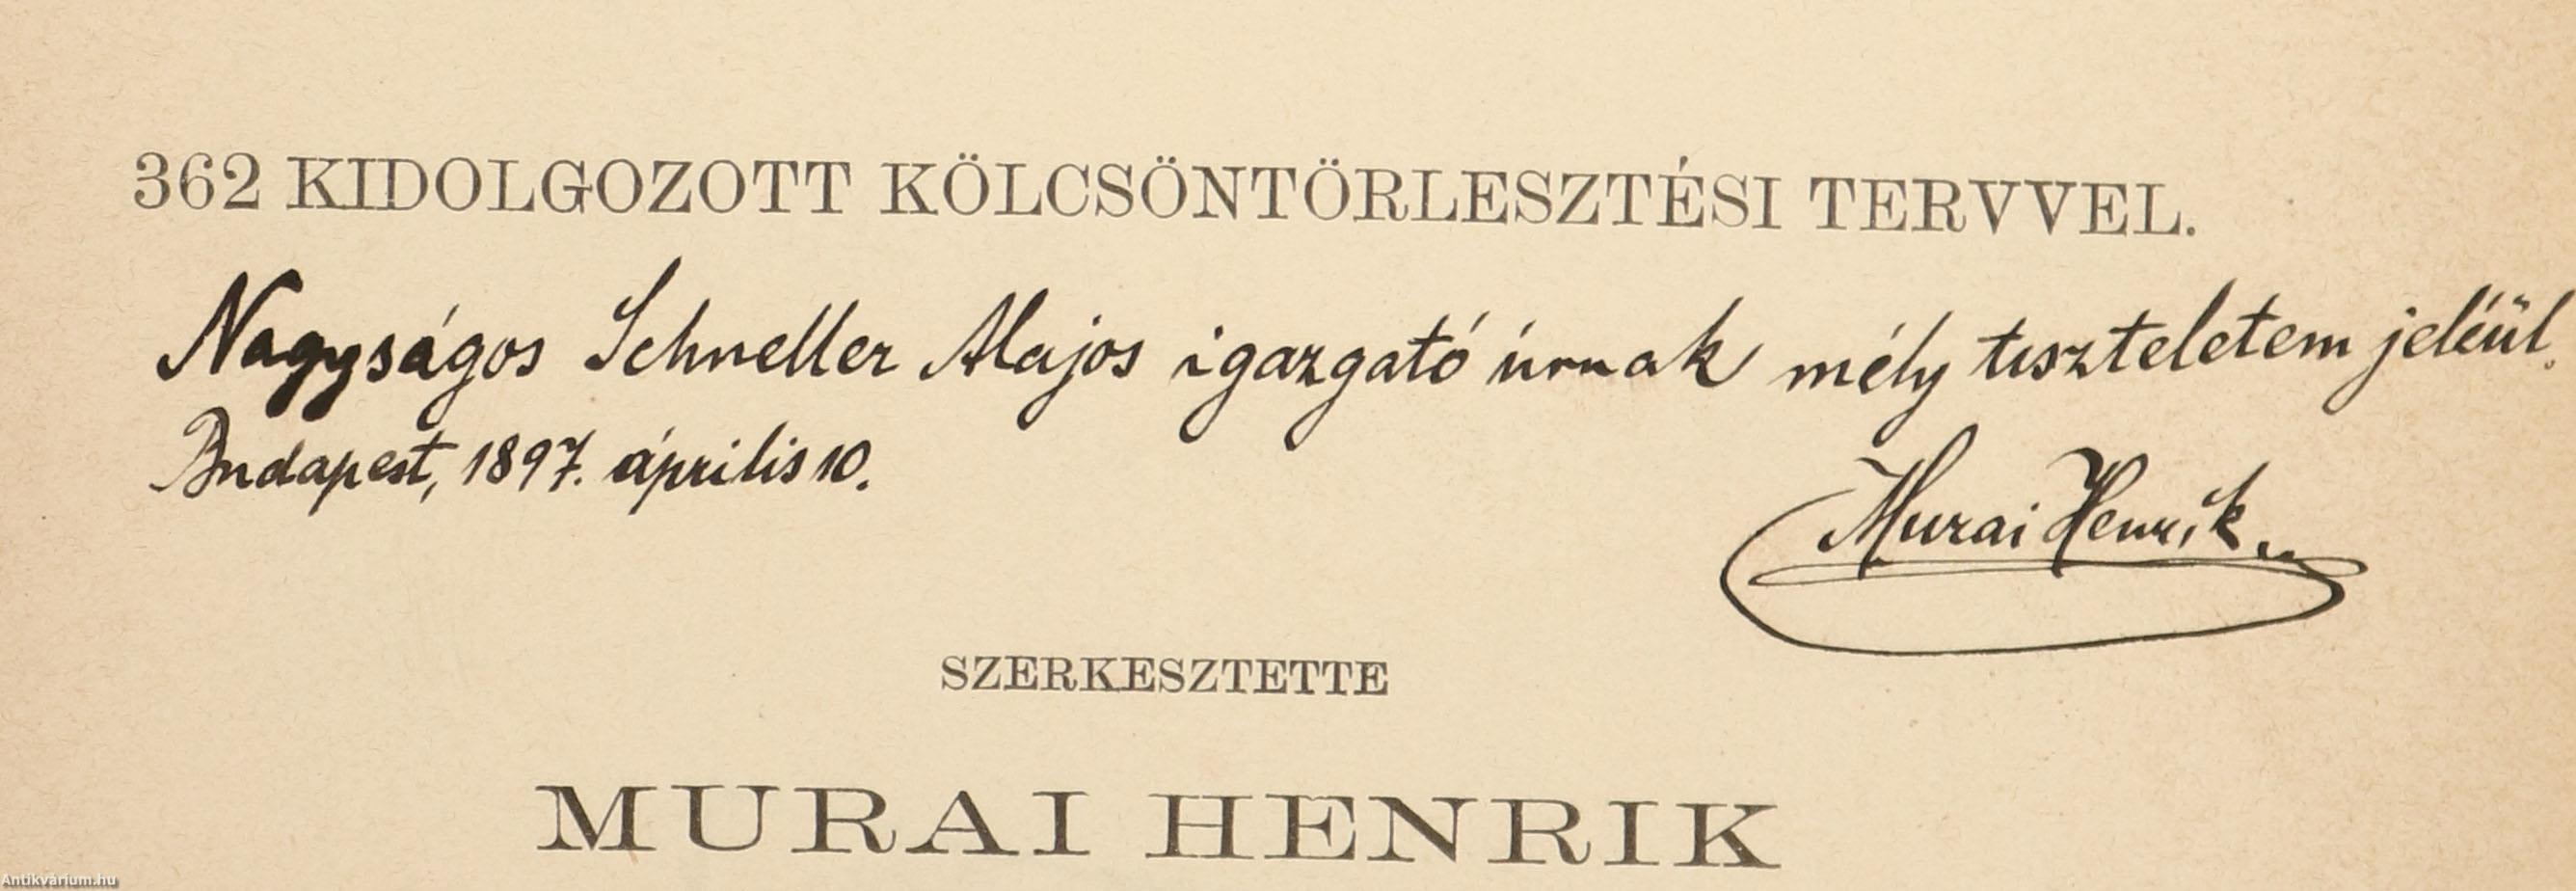 362 KIDOLGOZOTT KÖLCSÖNTÖRLESZTÉSI TERVVEL.
Nagyságos Schneller Alajos igazgató úrnak mély tiszteletem jeléül.
Budapest, 1897. április 10.
Murai Henrik
SZERKESZTETTE
MURAI HENRIK
Antikvárium.hu